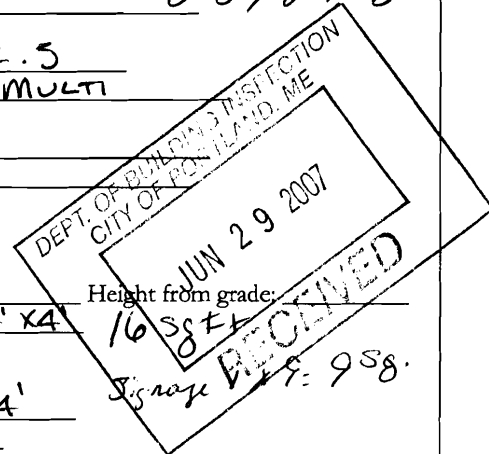 .5
MULTI
DEPT. OF BUILDING INSPECTION
CITY OF PORTLAND, ME
JUN 29 2007
RECEIVED
Height from grade:
X4' 16 sq ft
Signage 9 sq.
4'